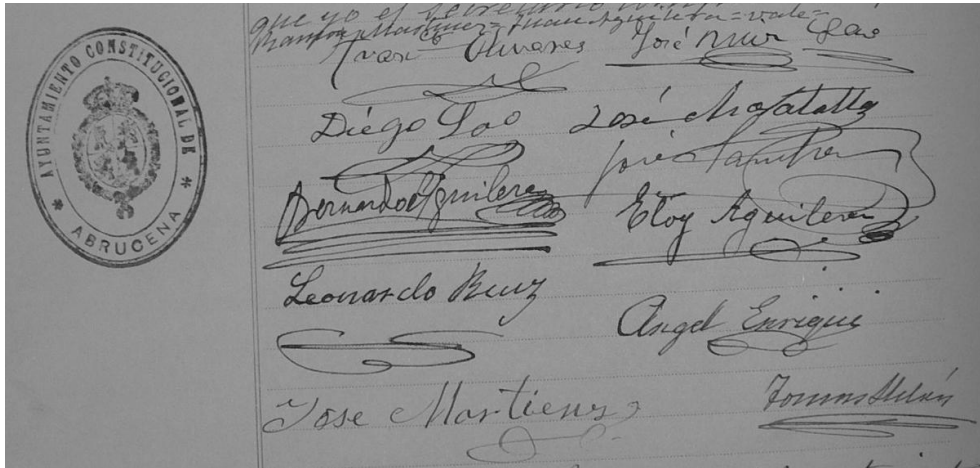 AYUNTAMIENTO CONSTITUCIONAL DE
* ABRUCENA *
que yo el
Juan Aguilera = vale =
Juan Olivares José Ruiz Lao
Diego Lao José Moratalla
José Sanchez
Bernardo Aguilera Eloy Aguilera
Leonardo Ruiz
Angel Enrique
Jose Martienz Tomas Milán